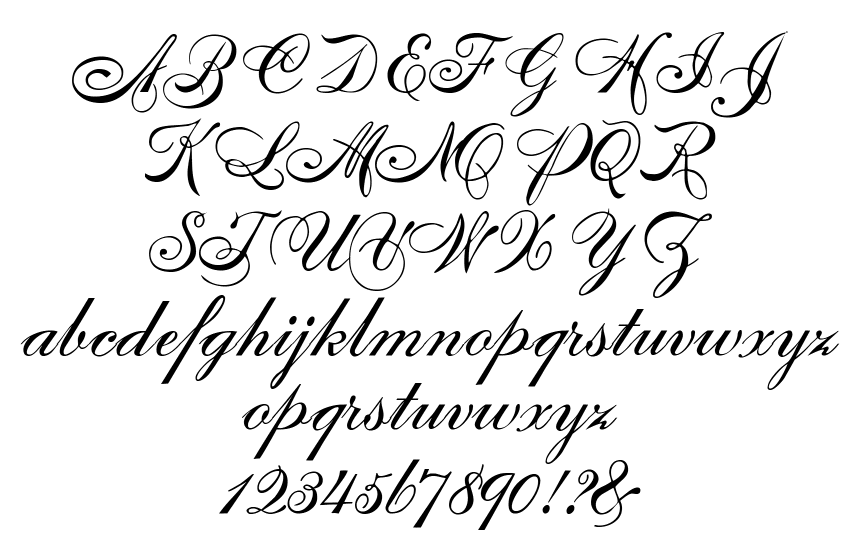 ABCDEFGHIJ
KLMNOPQR
STUVWXYZ
abcdefghijklmnopqrstuvwxyz
opqrstuvwxyz
1234567890!?&